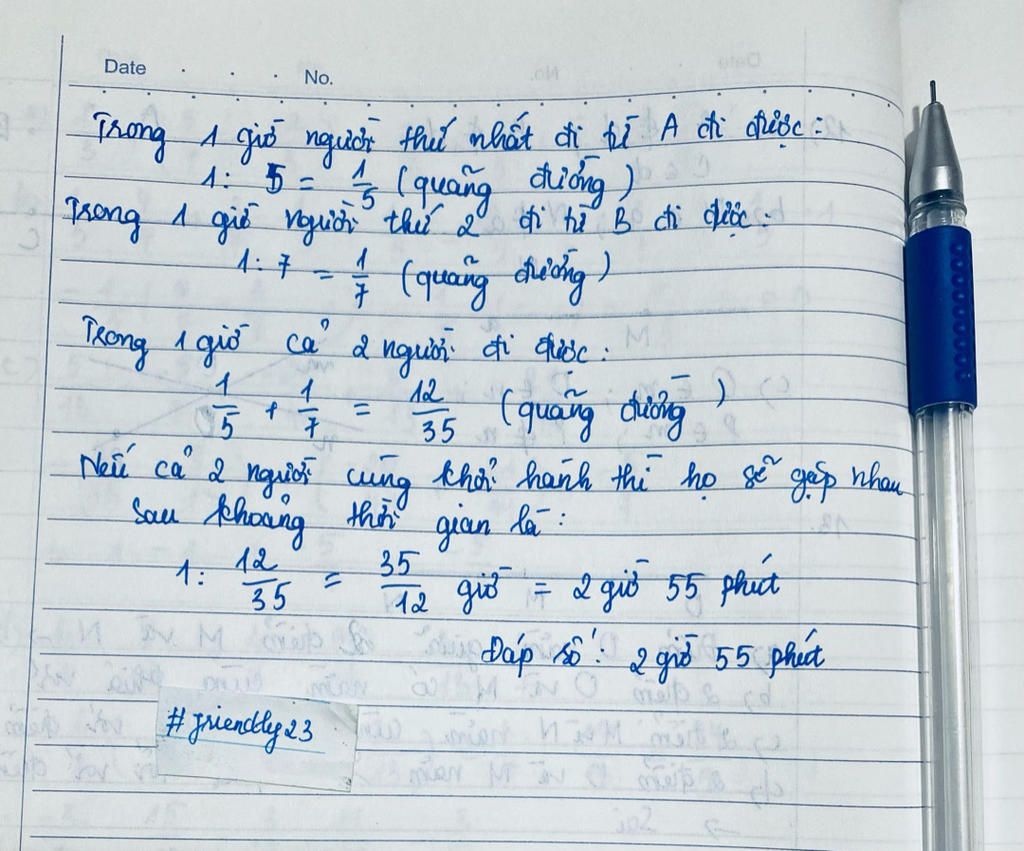 Date . . . No.
Trong 1 giờ người thứ nhất đi từ A đi được:
1: 5 = 1/5 (quãng đường)
Trong 1 giờ người thứ 2 đi từ B đi được:
1: 7 = 1/7 (quãng đường)
Trong 1 giờ cả 2 người đi được:
1/5 + 1/7 = 12/35 (quãng đường)
Nếu cả 2 người cùng khởi hành thì họ sẽ gặp nhau
sau khoảng thời gian là:
1: 12/35 = 35/12 giờ = 2 giờ 55 phút
Đáp số: 2 giờ 55 phút
#friendly23